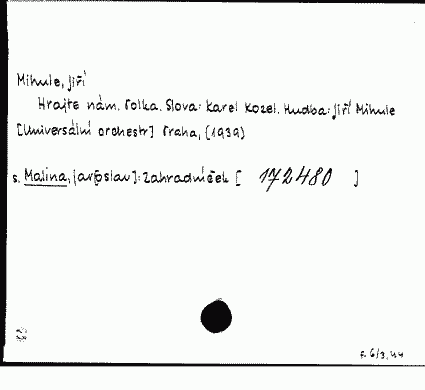 Mihule, Jiří
Hrajte nám. Polka. Slova: Karel Kozel. Hudba: Jiří Mihule
[Universální orchestr] Praha, (1939)
s. Malina, Jaroslav]: Zahradníček [ 172480 ]
F. 6/3.44